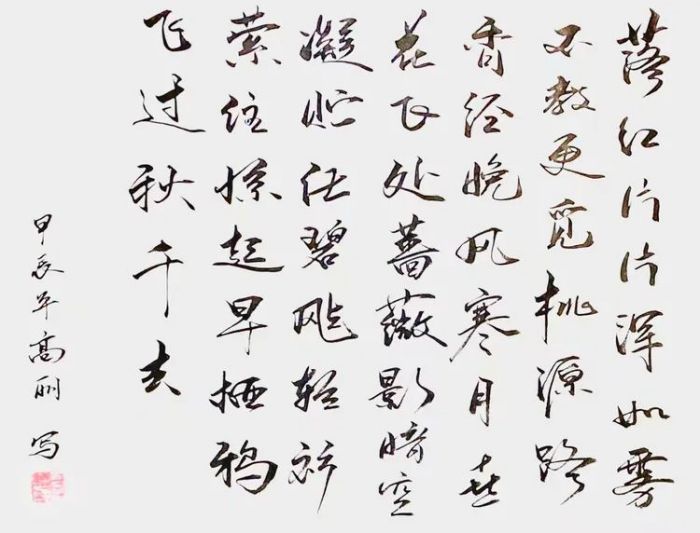 落红片片浑如雾
不教更觅桃源路
香径晚风寒月在
花飞处蔷薇影暗空
凝贮任碧飐轻衫
萦住惊起早栖鸦
飞过秋千去
甲辰年高丽写